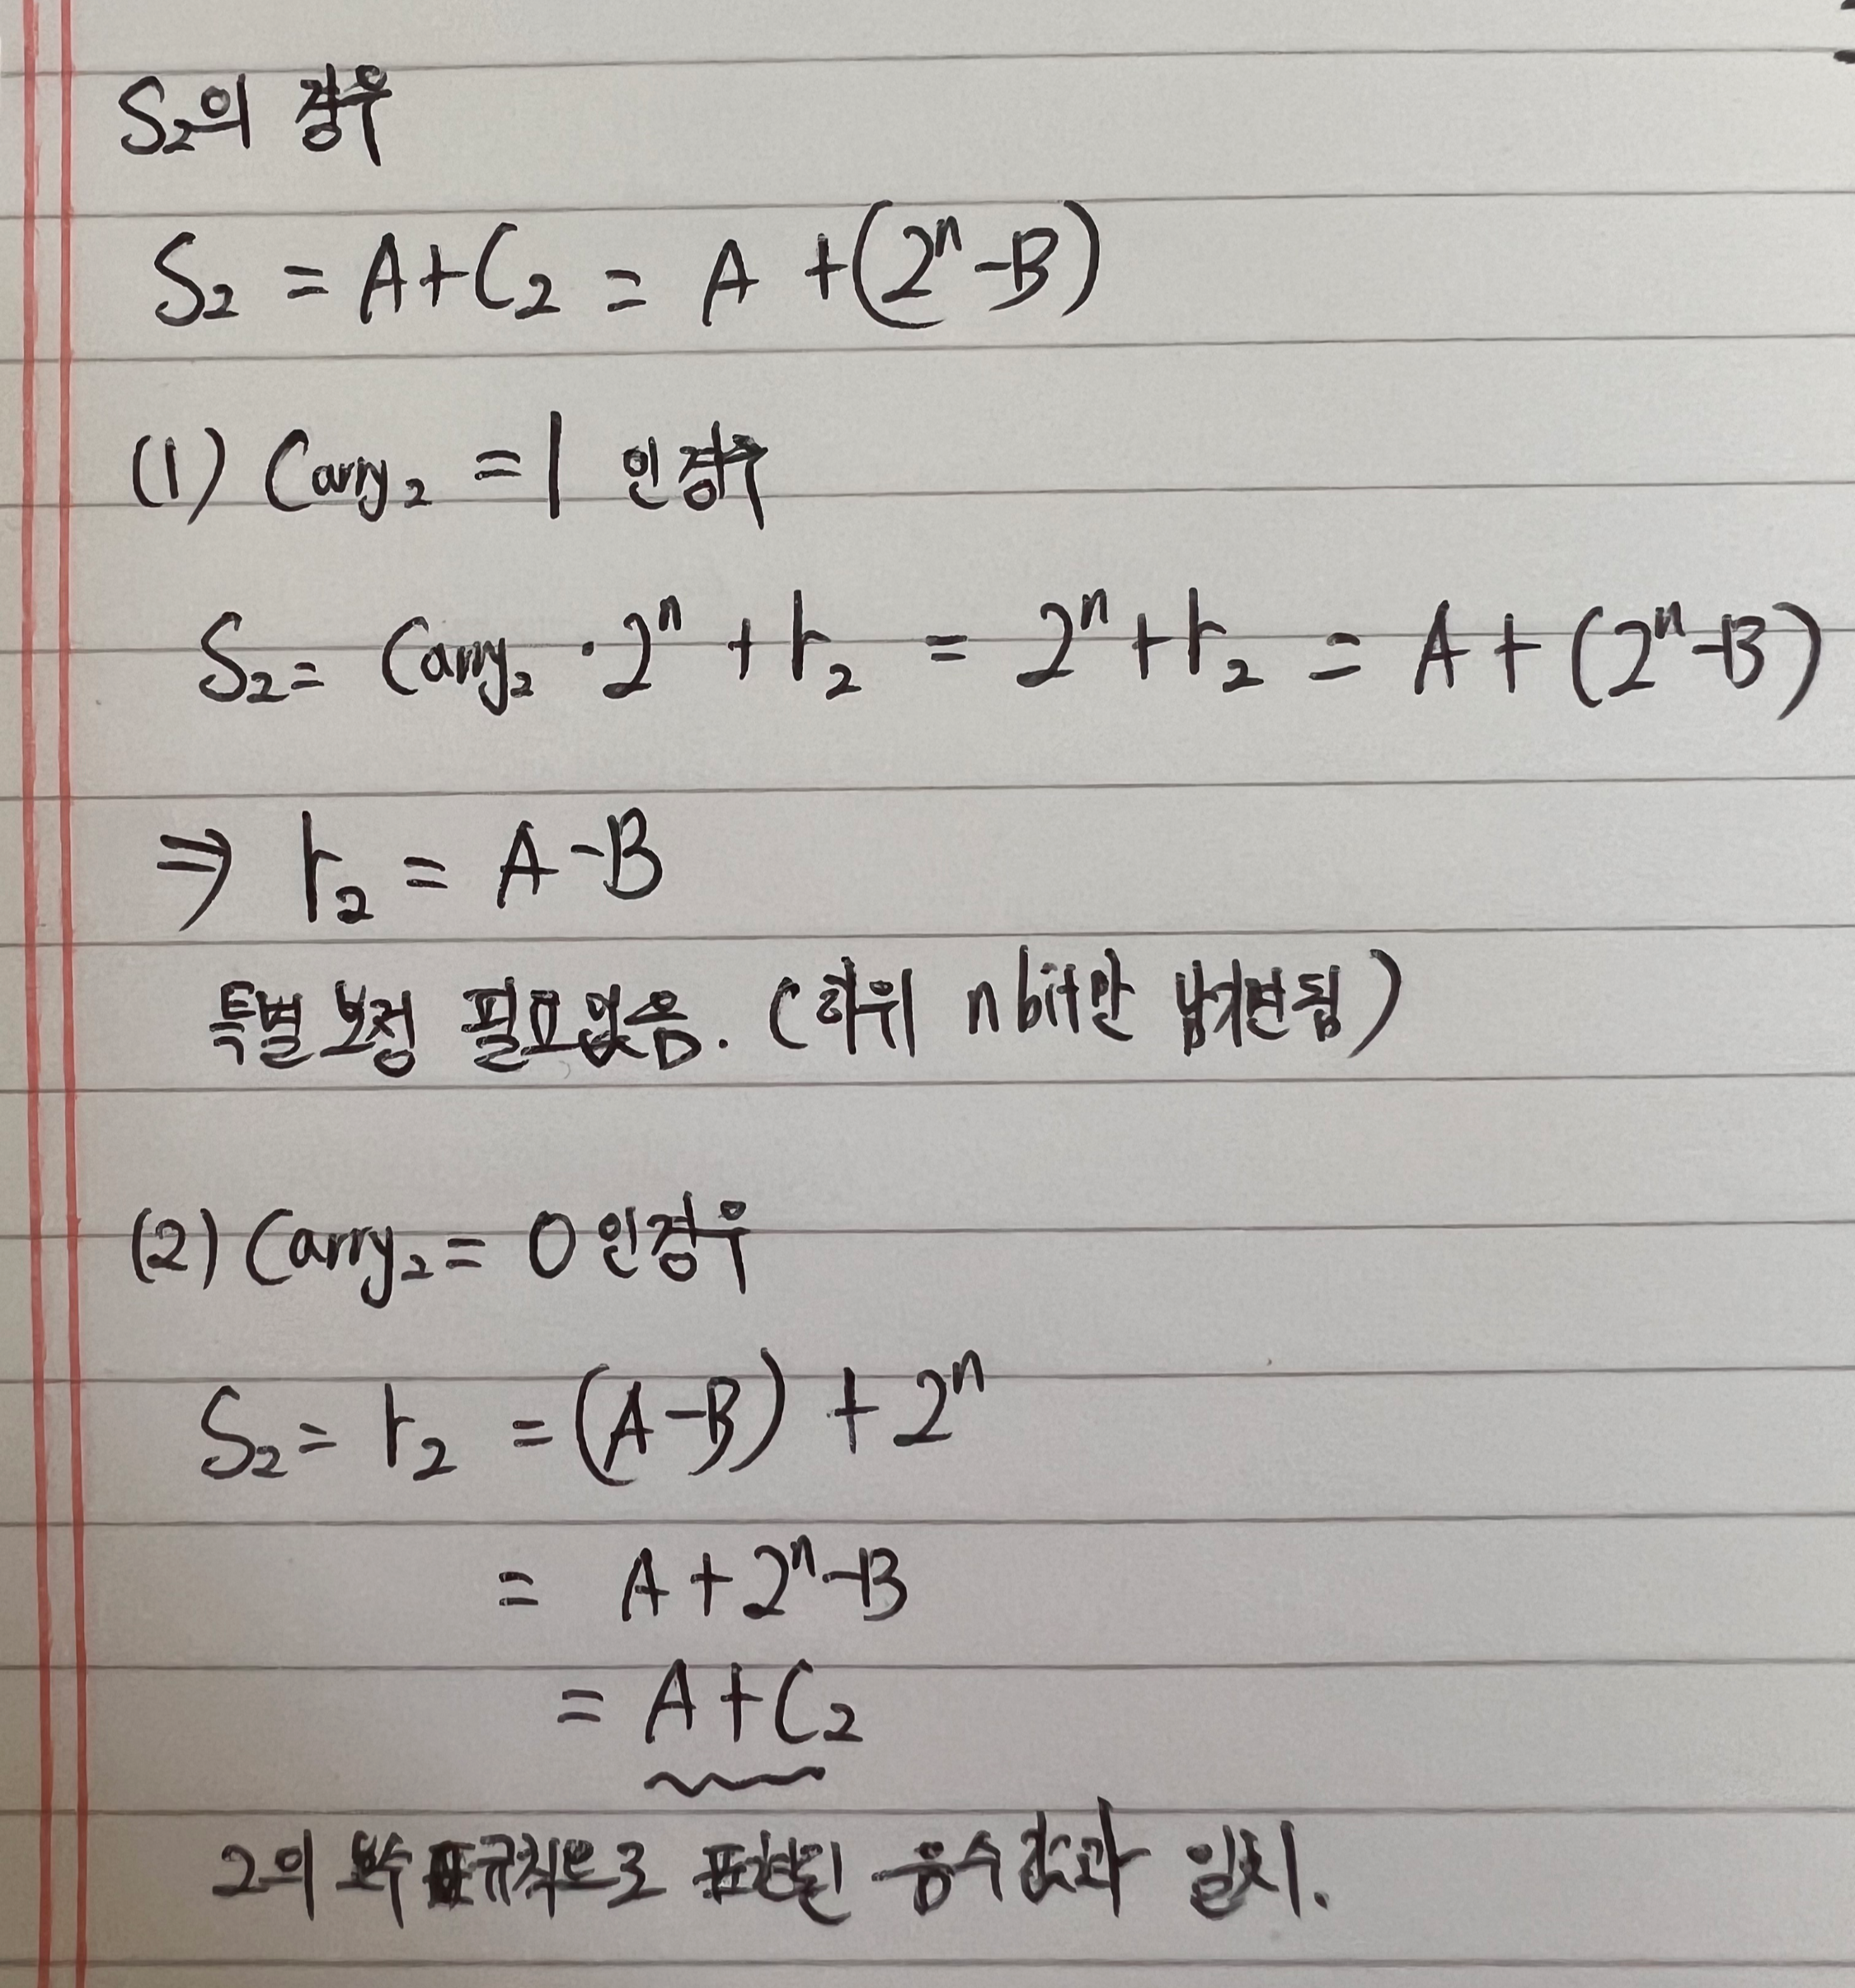 S₂의 경우
S₂ = A+C₂ = A +(2ⁿ-B)
(1) Carry₂ = 1 인경우
S₂= Carry₂ · 2ⁿ + r₂ = 2ⁿ+r₂ = A + (2ⁿ-B)
⇒ r₂ = A-B
특별 보정 필요없음. (하위 n bit만 남기면됨)
(2) Carry₂= 0 인경우
S₂= r₂ = (A-B) + 2ⁿ
= A+2ⁿ-B
= A+C₂
2의 보수 규칙으로 표현된 음수 값과 일치.